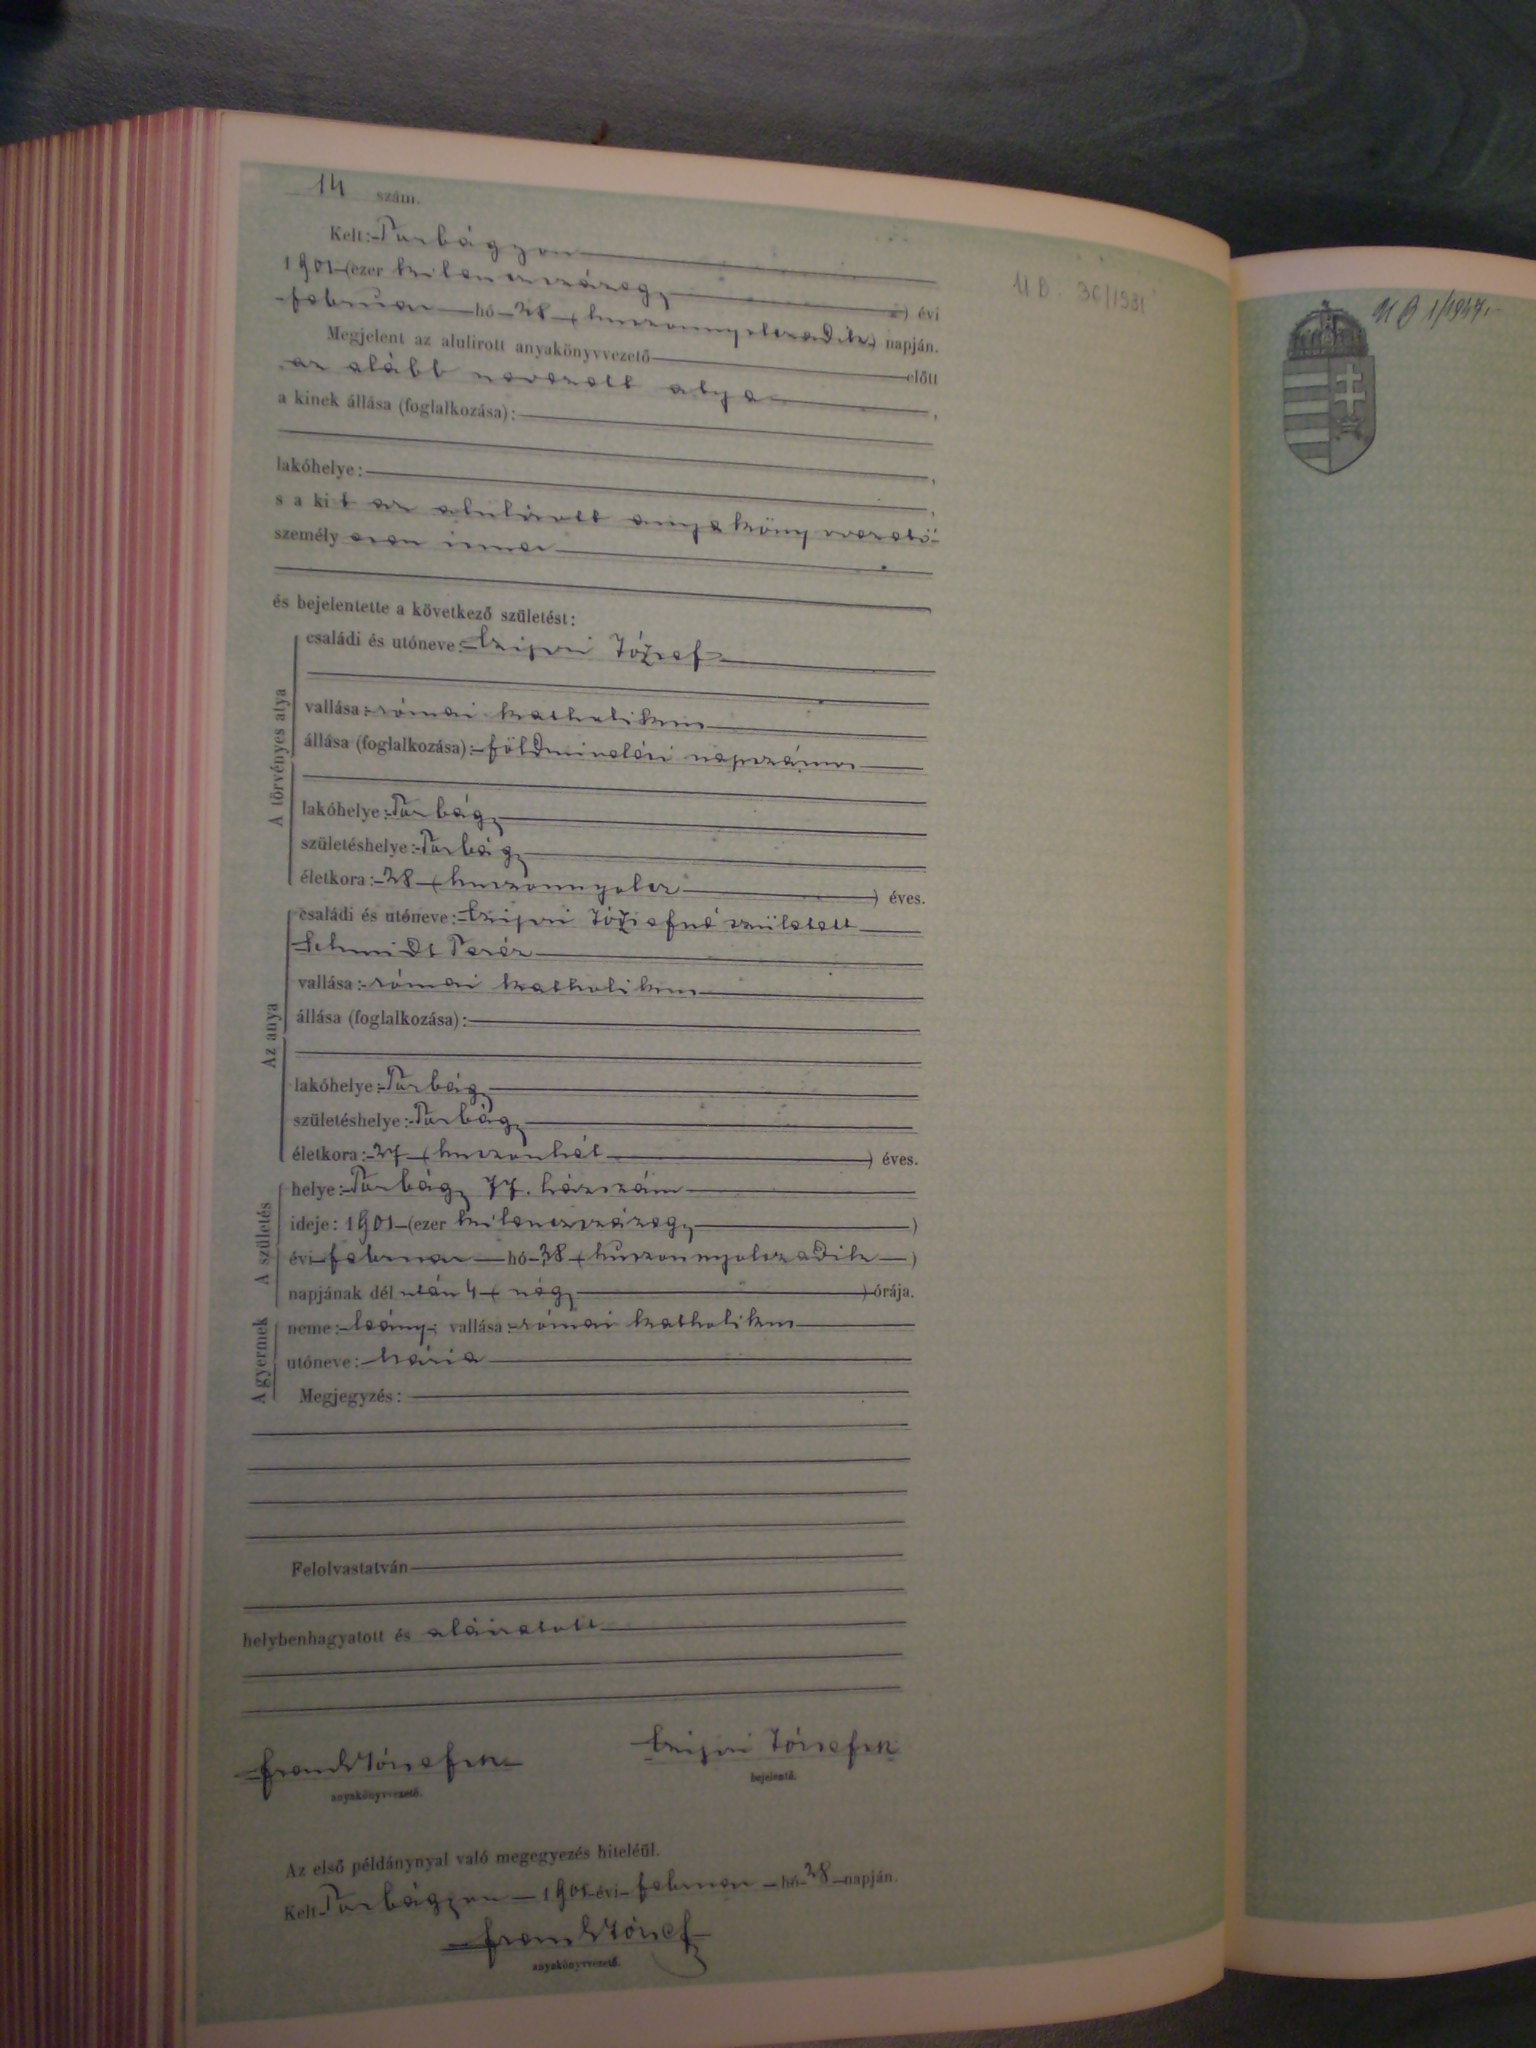 14 szám.
Kelt: Turbágyon
1901 (ezer kilenczszázegy) évi
február hó 28 (huszonnyolczadik) napján.
Megjelent az alulirott anyakönyvvezető előtt
az alább nevezett atya,
a kinek állása (foglalkozása):
lakóhelye:
s a kit az alulirott anyakönyvvezető
személyesen ismer
és bejelentette a következő születést:
A törvényes atya
családi és utóneve: József
vallása: római katholikus
állása (foglalkozása): földmivelési napszámos
lakóhelye: Turbágy
születéshelye: Turbágy
életkora: 28 (huszonnyolcz) éves.
Az anya
családi és utóneve: Józsefné született
Schmidt Teréz
vallása: római katholikus
állása (foglalkozása):
lakóhelye: Turbágy
születéshelye: Turbágy
életkora: 27 (huszonhét) éves.
A születés
helye: Turbágy 77. házszám
ideje: 1901 (ezer kilenczszázegy)
évi február hó 28 (huszonnyolczadik)
napjának dél után 4 (négy) órája.
A gyermek
neme: leány; vallása: római katholikus
utóneve: Mária
Megjegyzés:
Felolvastatván
helybenhagyatott és aláiratott
József
anyakönyvvezető.
József
bejelentő.
Az első példánynyal való megegyezés hiteléül.
Kelt Turbágyon 1901 évi február hó 28 napján.
József
anyakönyvvezető.
U B 36/1931